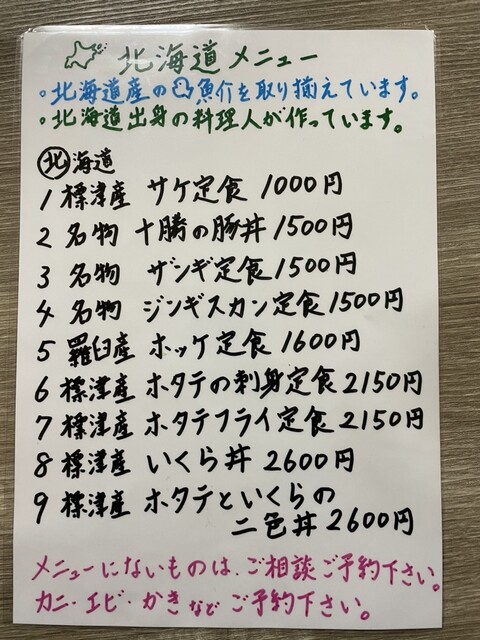 北海道メニュー
。北海道産の魚介を取り揃えています。
。北海道出身の料理人が作っています。
北海道
1 標津産 サケ定食 1000円
2 名物 十勝の豚丼 1500円
3 名物 ザンギ定食 1500円
4 名物 ジンギスカン定食 1500円
5 羅臼産 ホッケ定食 1600円
6 標津産 ホタテの刺身定食 2150円
7 標津産 ホタテフライ定食 2150円
8 標津産 いくら丼 2600円
9 標津産 ホタテといくらの
二色丼 2600円
メニューにないものは、ご相談ご予約下さい。
カニ・エビ・かきなどご予約下さい。